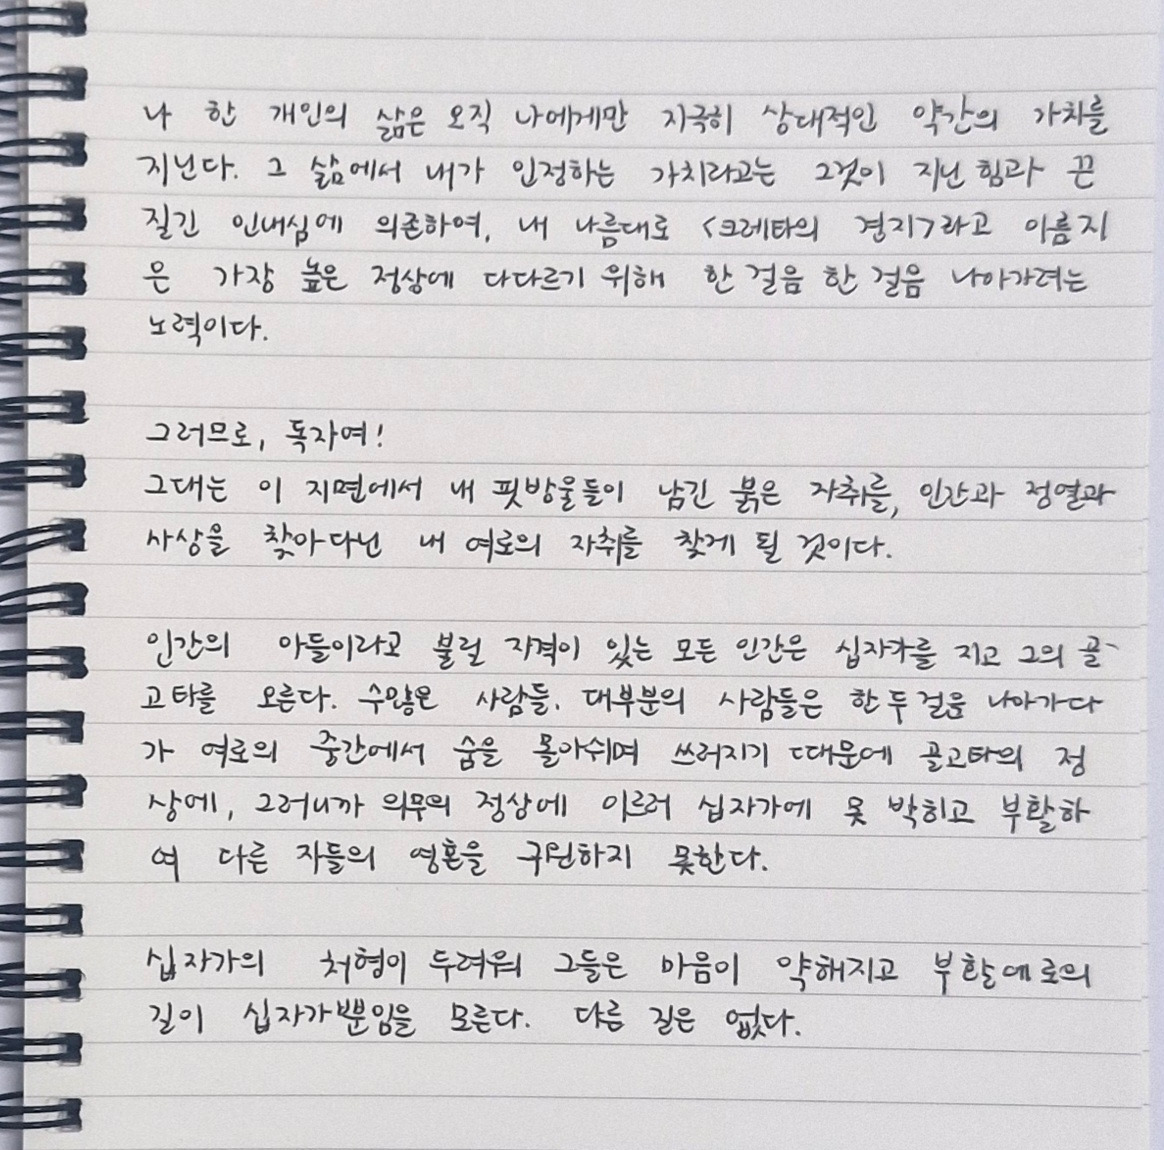 나 한 개인의 삶은 오직 나에게만 지극히 상대적인 약간의 가치를
지닌다. 그 삶에서 내가 인정하는 가치라고는 그것이 지닌 힘과 끈
질긴 인내심에 의존하여, 내 나름대로 <크레타의 경지>라고 이름지
은 가장 높은 정상에 다다르기 위해 한 걸음 한 걸음 나아가려는
노력이다.
그러므로, 독자여!
그대는 이 지면에서 내 핏방울들이 남긴 붉은 자취를, 인간과 정열과
사상을 찾아다닌 내 여로의 자취를 찾게 될 것이다.
인간의 아들이라고 불릴 자격이 있는 모든 인간은 십자가를 지고 그의 골
고타를 오른다. 수많은 사람들. 대부분의 사람들은 한두 걸음 나아가다
가 여로의 중간에서 숨을 몰아쉬며 쓰러지기 때문에 골고타의 정
상에, 그러니까 의무의 정상에 이르러 십자가에 못 박히고 부활하
여 다른 자들의 영혼을 구원하지 못한다.
십자가의 처형이 두려워 그들은 마음이 약해지고 부활에로의
길이 십자가뿐임을 모른다. 다른 길은 없다.